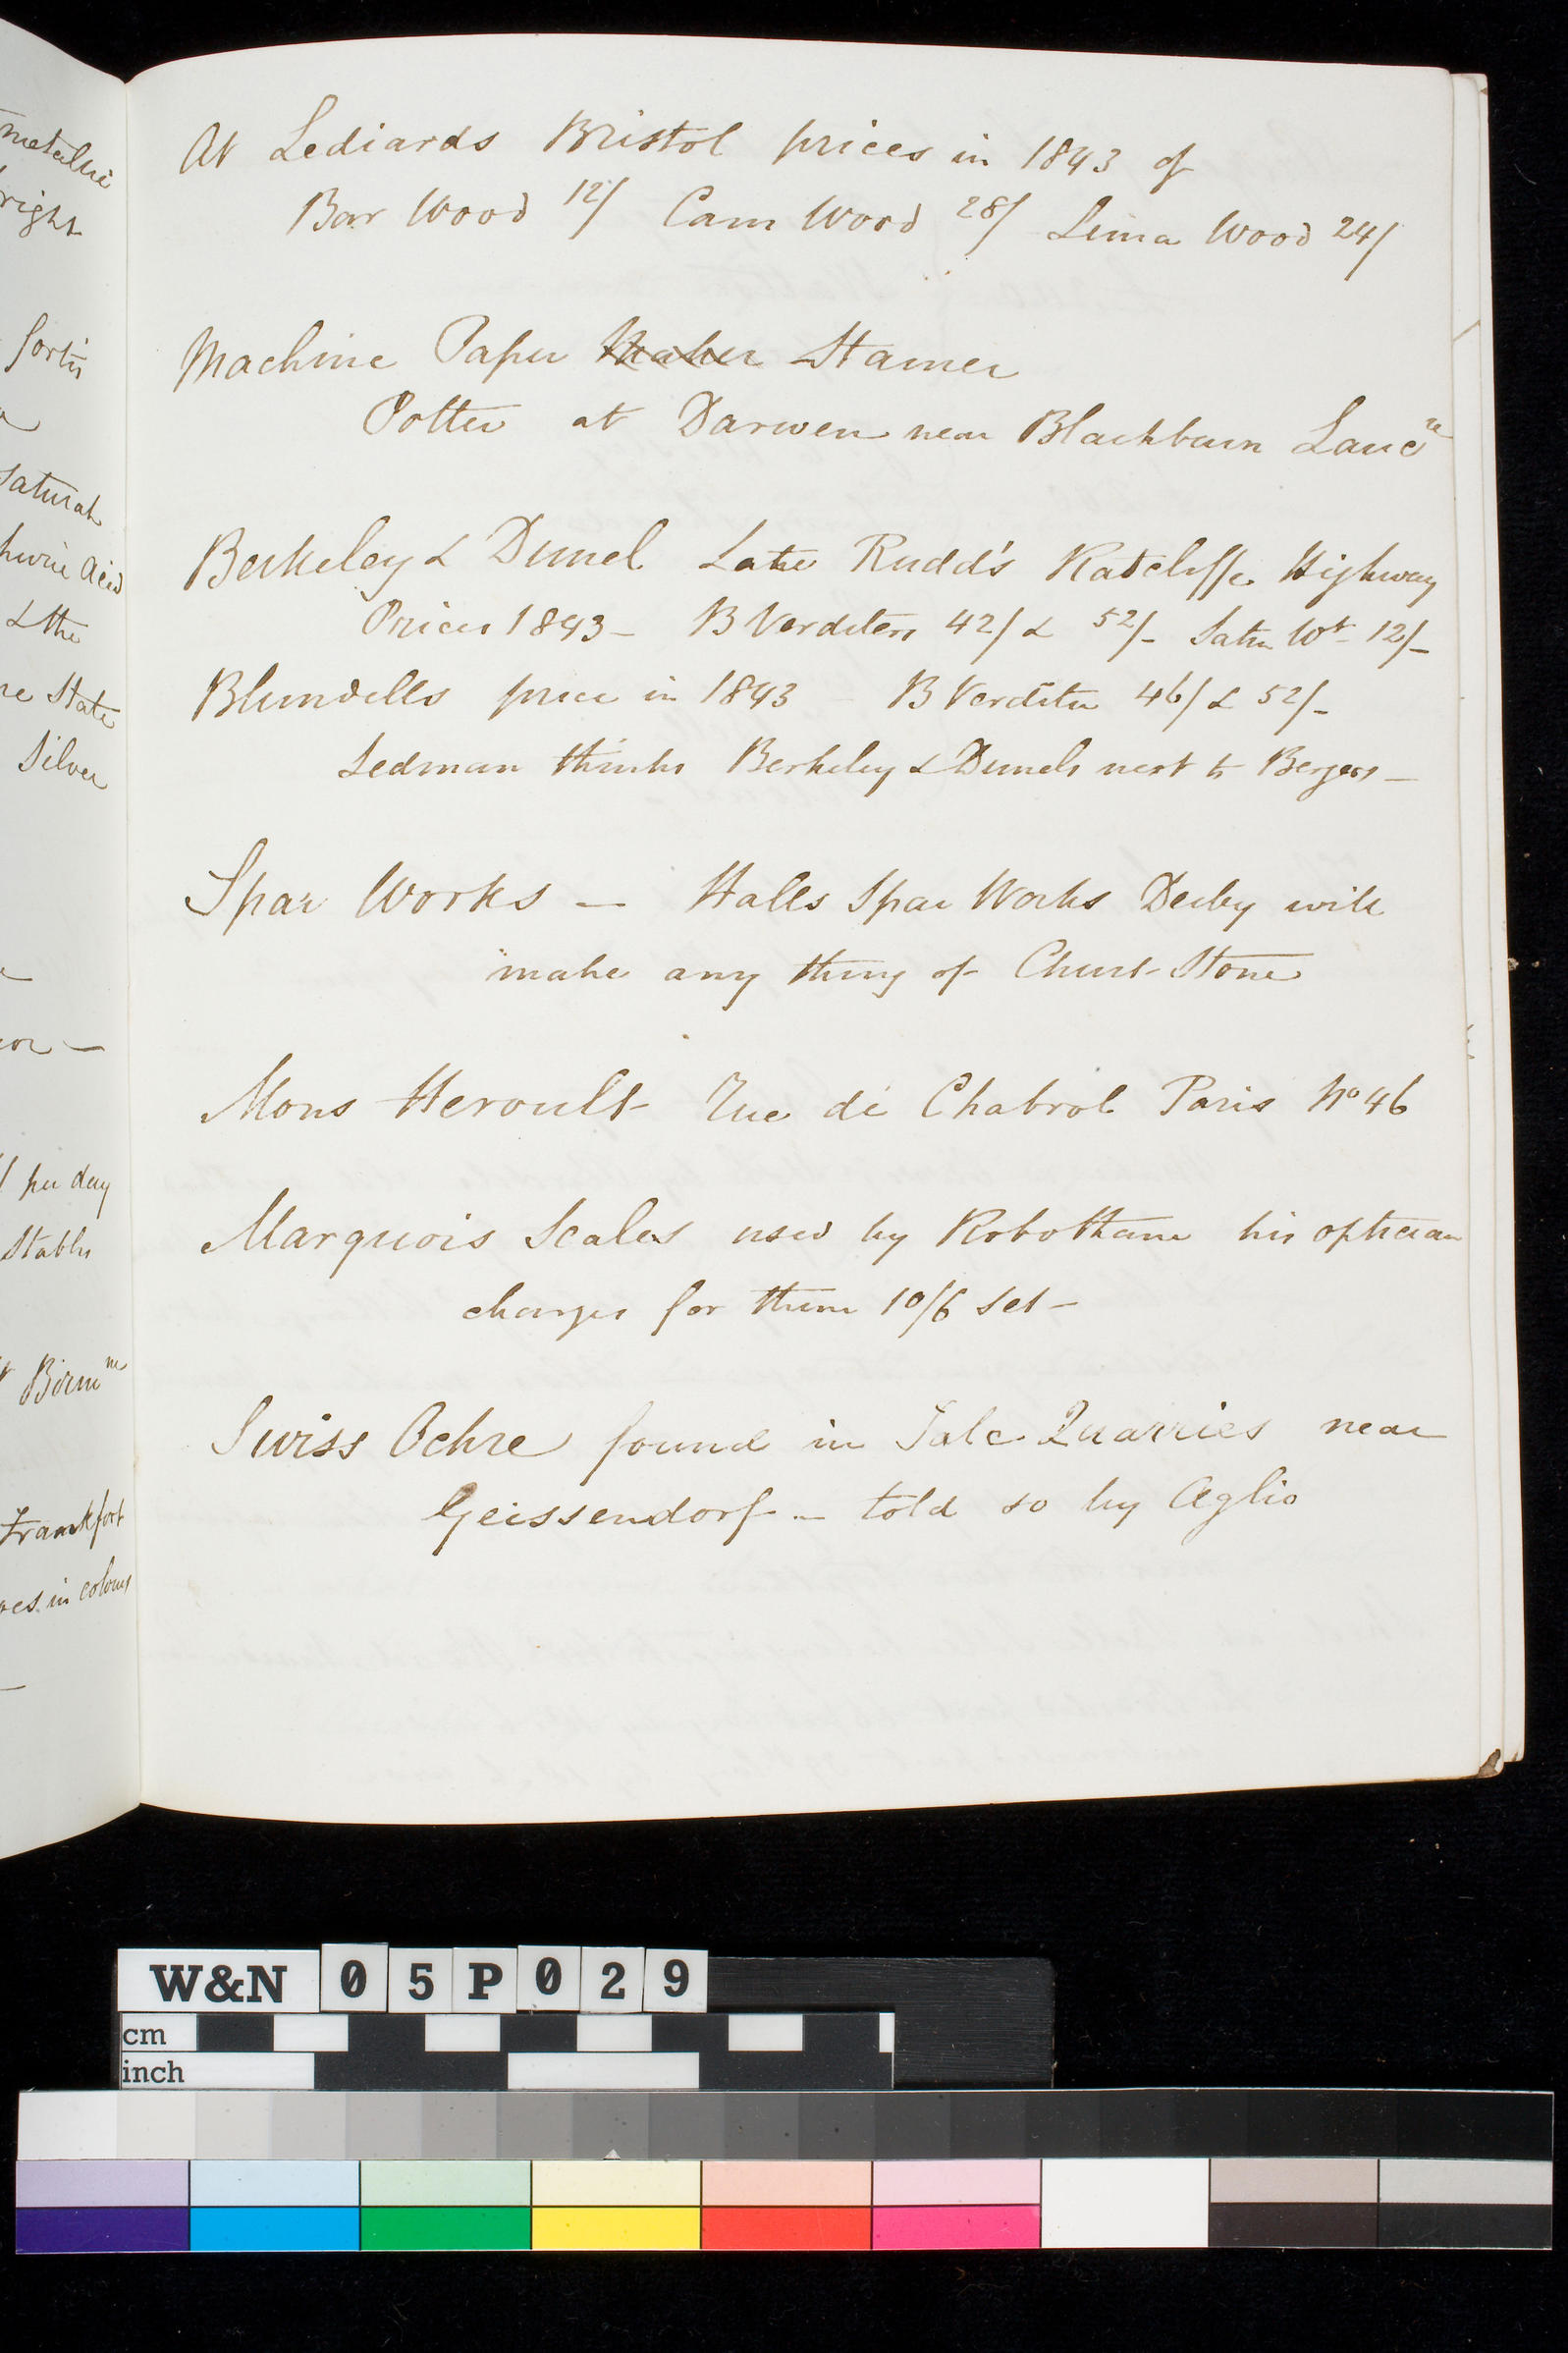 metallic
right
fortis
saturat
huric acid
& the
re State
Silver
/ per day
Stables
Birm^m
Frankfort
res in colours
At Lediards Bristol prices in 1843 of
Bar Wood 12/ Cam Wood 28/ Lima Wood 24/
Machine Paper Maker Stainer
Potter at Darwen near Blackburn Lanc^r
Berkeley & Dimel Late Rudd's Ratcliffe Highway
Prices 1843 - B Verditers 42/ & 52/- Satin Wt 12/-
Blundells price in 1843 - B Verditer 46/ & 52/-
Sedman thinks Berkeley & Dimels next to Bergers -
Spar Works - Halls Spar Works Derby will
make any thing of Churt Stone
Mons Heroult Rue de Chabrol Paris No 46
Marquois Scales used by Robottam his optician
charges for them 10/6 set -
Swiss Ochre found in Talc Quarries near
Geissendorf - told so by Aglio
W&N 05P029
cm
inch